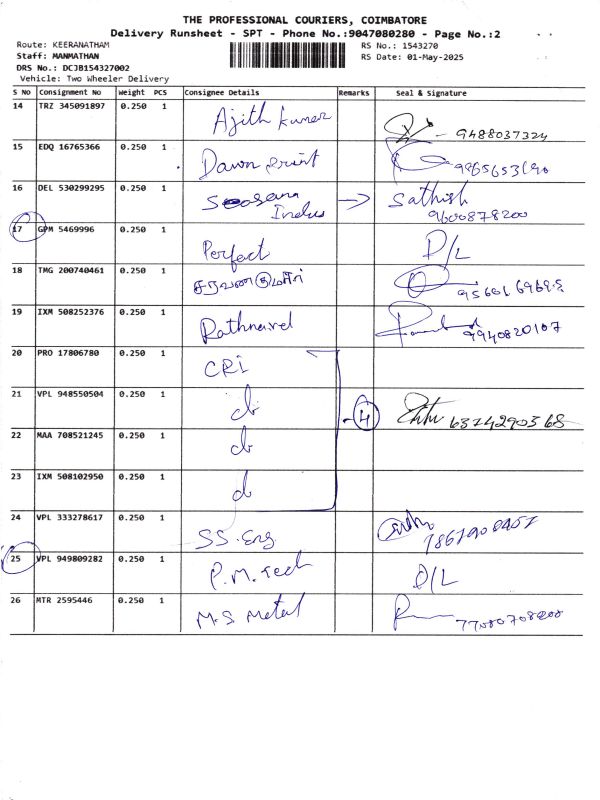 THE PROFESSIONAL COURIERS, COIMBATORE
Delivery Runsheet - SPT - Phone No.:9047080280 - Page No.:2
Route: KEERANATHAM
RS No.: 1543270
Staff: MANMATHAN
RS Date: 01-May-2025
DRS No.: DCJB154327002
Vehicle: Two Wheeler Delivery
S No Consignment No Weight PCS Consignee Details Remarks Seal & Signature
14 TRZ 345091897 0.250 1 Ajith kumar - 9488037324
15 EDQ 16765366 0.250 1 Dawn print
16 DEL 530299295 0.250 1 Indus → Sathish
9600878200
17 GPM 5469996 0.250 1 Perfect D/L
18 TMG 200740461 0.250 1
19 IXM 508252376 0.250 1 Rathnavel 9940820107
20 PRO 17806780 0.250 1 CRI
21 VPL 948550504 0.250 1 do 4 6374290368
22 MAA 708521245 0.250 1 do
23 IXM 508102950 0.250 1 do
24 VPL 333278617 0.250 1 SS.Eng
25 VPL 949809282 0.250 1 P.M.Tech D/L
26 MTR 2595446 0.250 1 M.S Metal